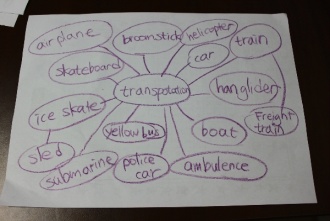 airplane
broomstick
helicopter
train
skateboard
car
transpotation
hanglider
ice skate
yellow bus
boat
Freight
train
sled
submarine
police
car
ambulence